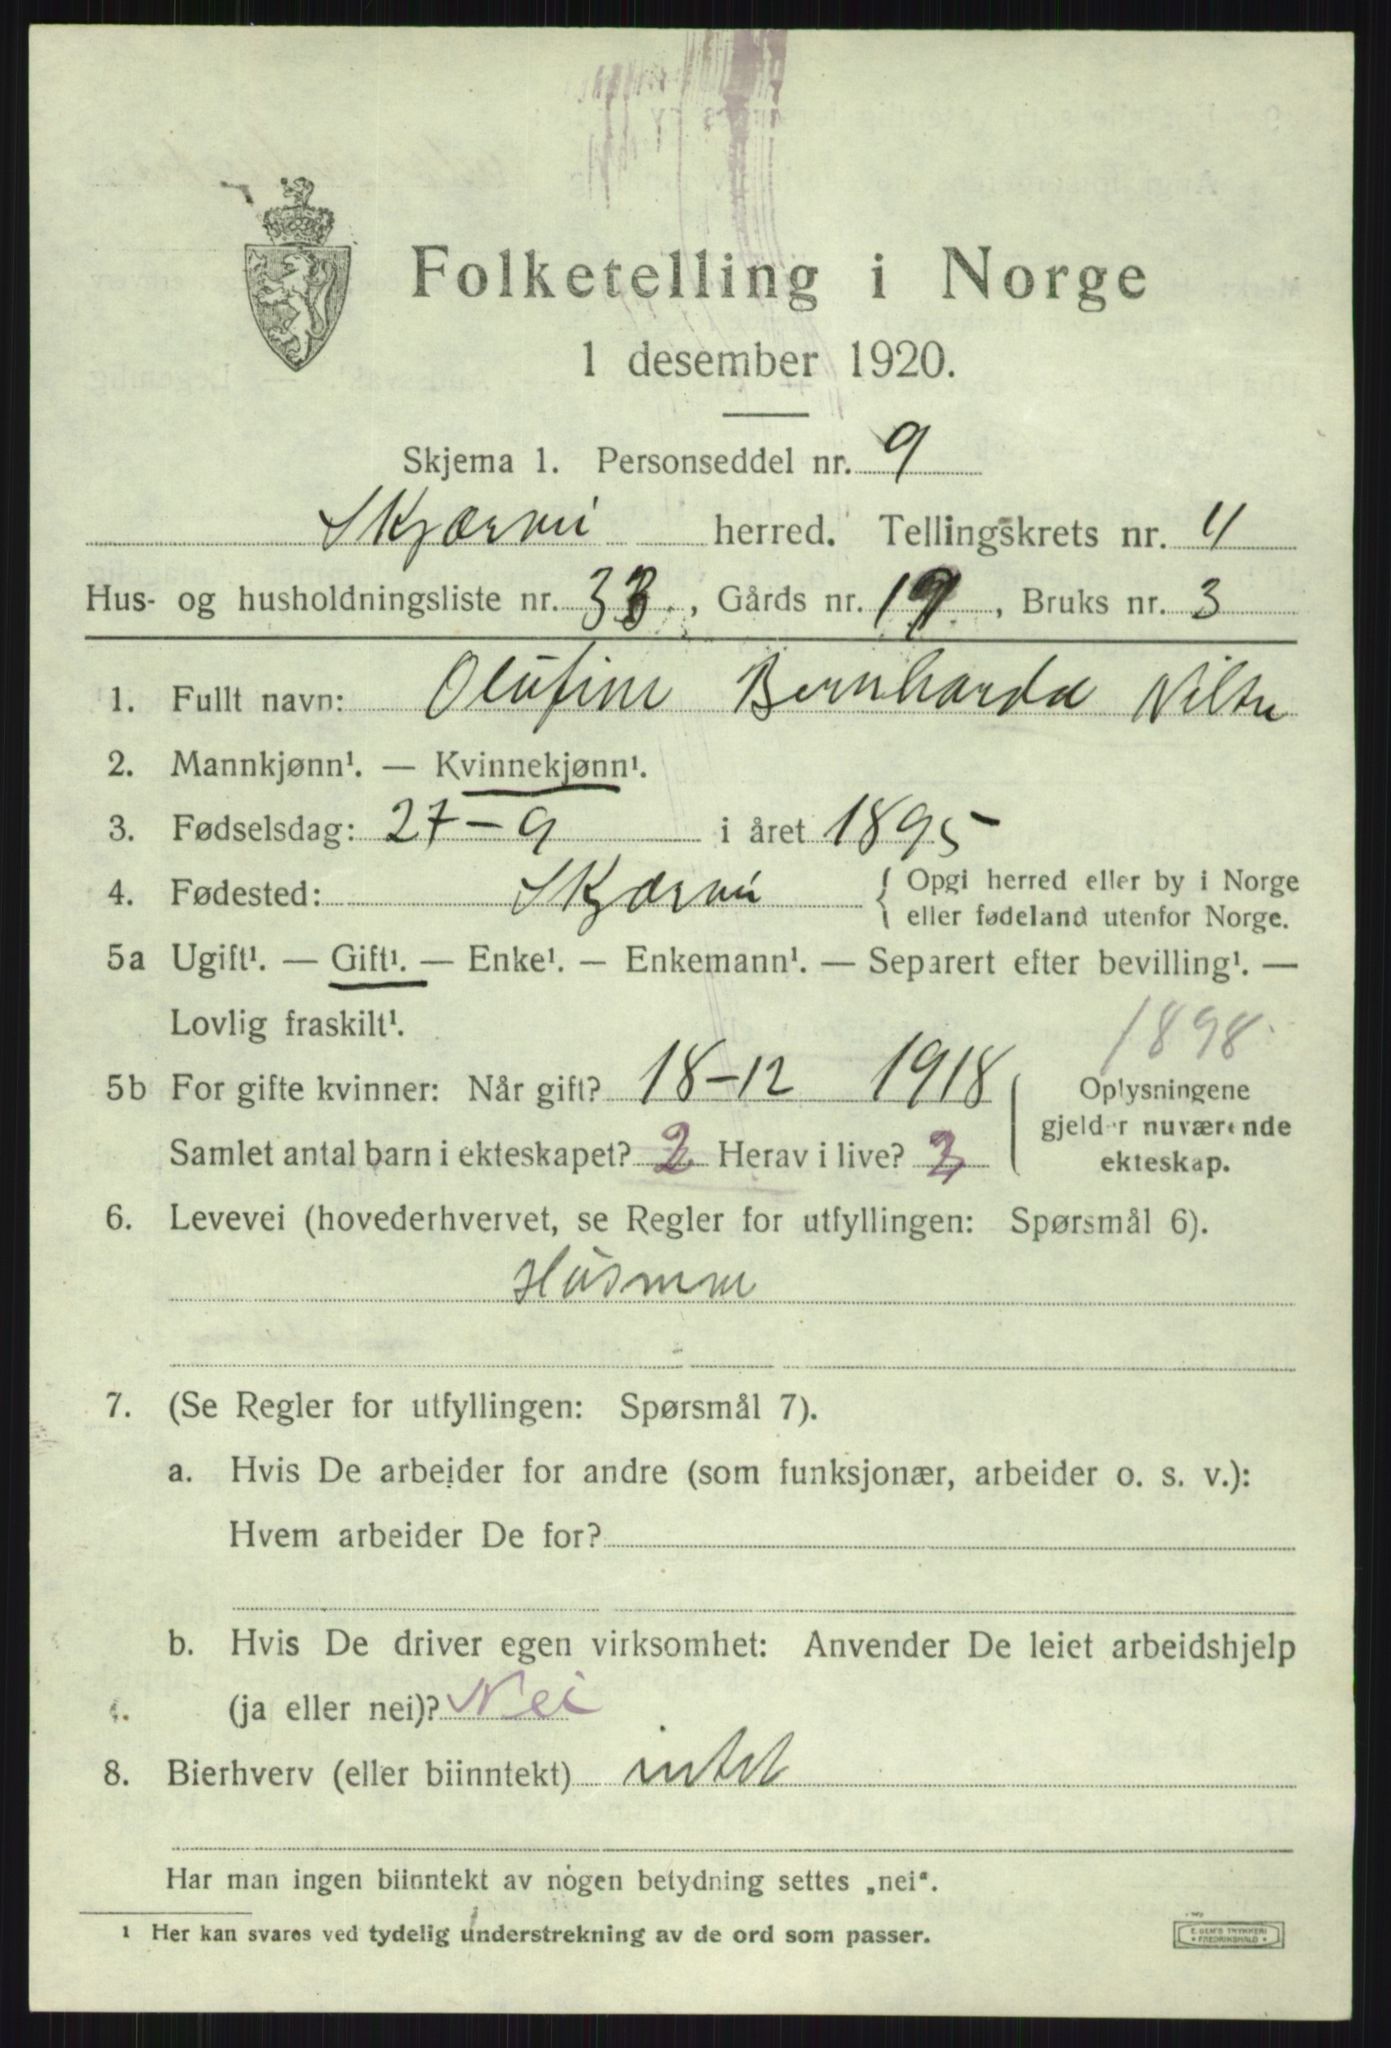 Folketelling i Norge
1 desember 1920.
Skjema 1. Personseddel nr. 9
Skjærvü herred. Tellingskrets nr. 4
Hus- og husholdningsliste nr. 33. , Gårds nr. 19. , Bruks nr. 3
1. Fullt navn: Olüfine Bernharda
2. Mannkjønn¹. — Kvinnekjønn¹.
3. Fødselsdag: 27-9 i året 1895
4. Fødested: Skjærvü { Opgi herred eller by i Norge
eller fødeland utenfor Norge.
5a Ugift¹. — Gift¹. — Enke¹. — Enkemann¹. — Separert efter bevilling¹. —
Lovlig fraskilt¹.
1898.
5b For gifte kvinner: Når gift? 18-12 1918
Samlet antal barn i ekteskapet? 2 Herav i live? 2
Oplysningene
gjelder nuværende
ekteskap.
6. Levevei (hovederhvervet, se Regler for utfyllingen: Spørsmål 6).
Hüsmor
7. (Se Regler for utfyllingen: Spørsmål 7).
a. Hvis De arbeider for andre (som funksjonær, arbeider o. s. v.):
Hvem arbeider De for?
b. Hvis De driver egen virksomhet: Anvender De leiet arbeidshjelp
(ja eller nei)? Nei
8. Bierhverv (eller biinntekt) intet
Har man ingen biinntekt av nogen betydning settes „nei“.
¹ Her kan svares ved tydelig understrekning av de ord som passer.
E. SEM'S TRYKKERI
FREDRIKSHALD